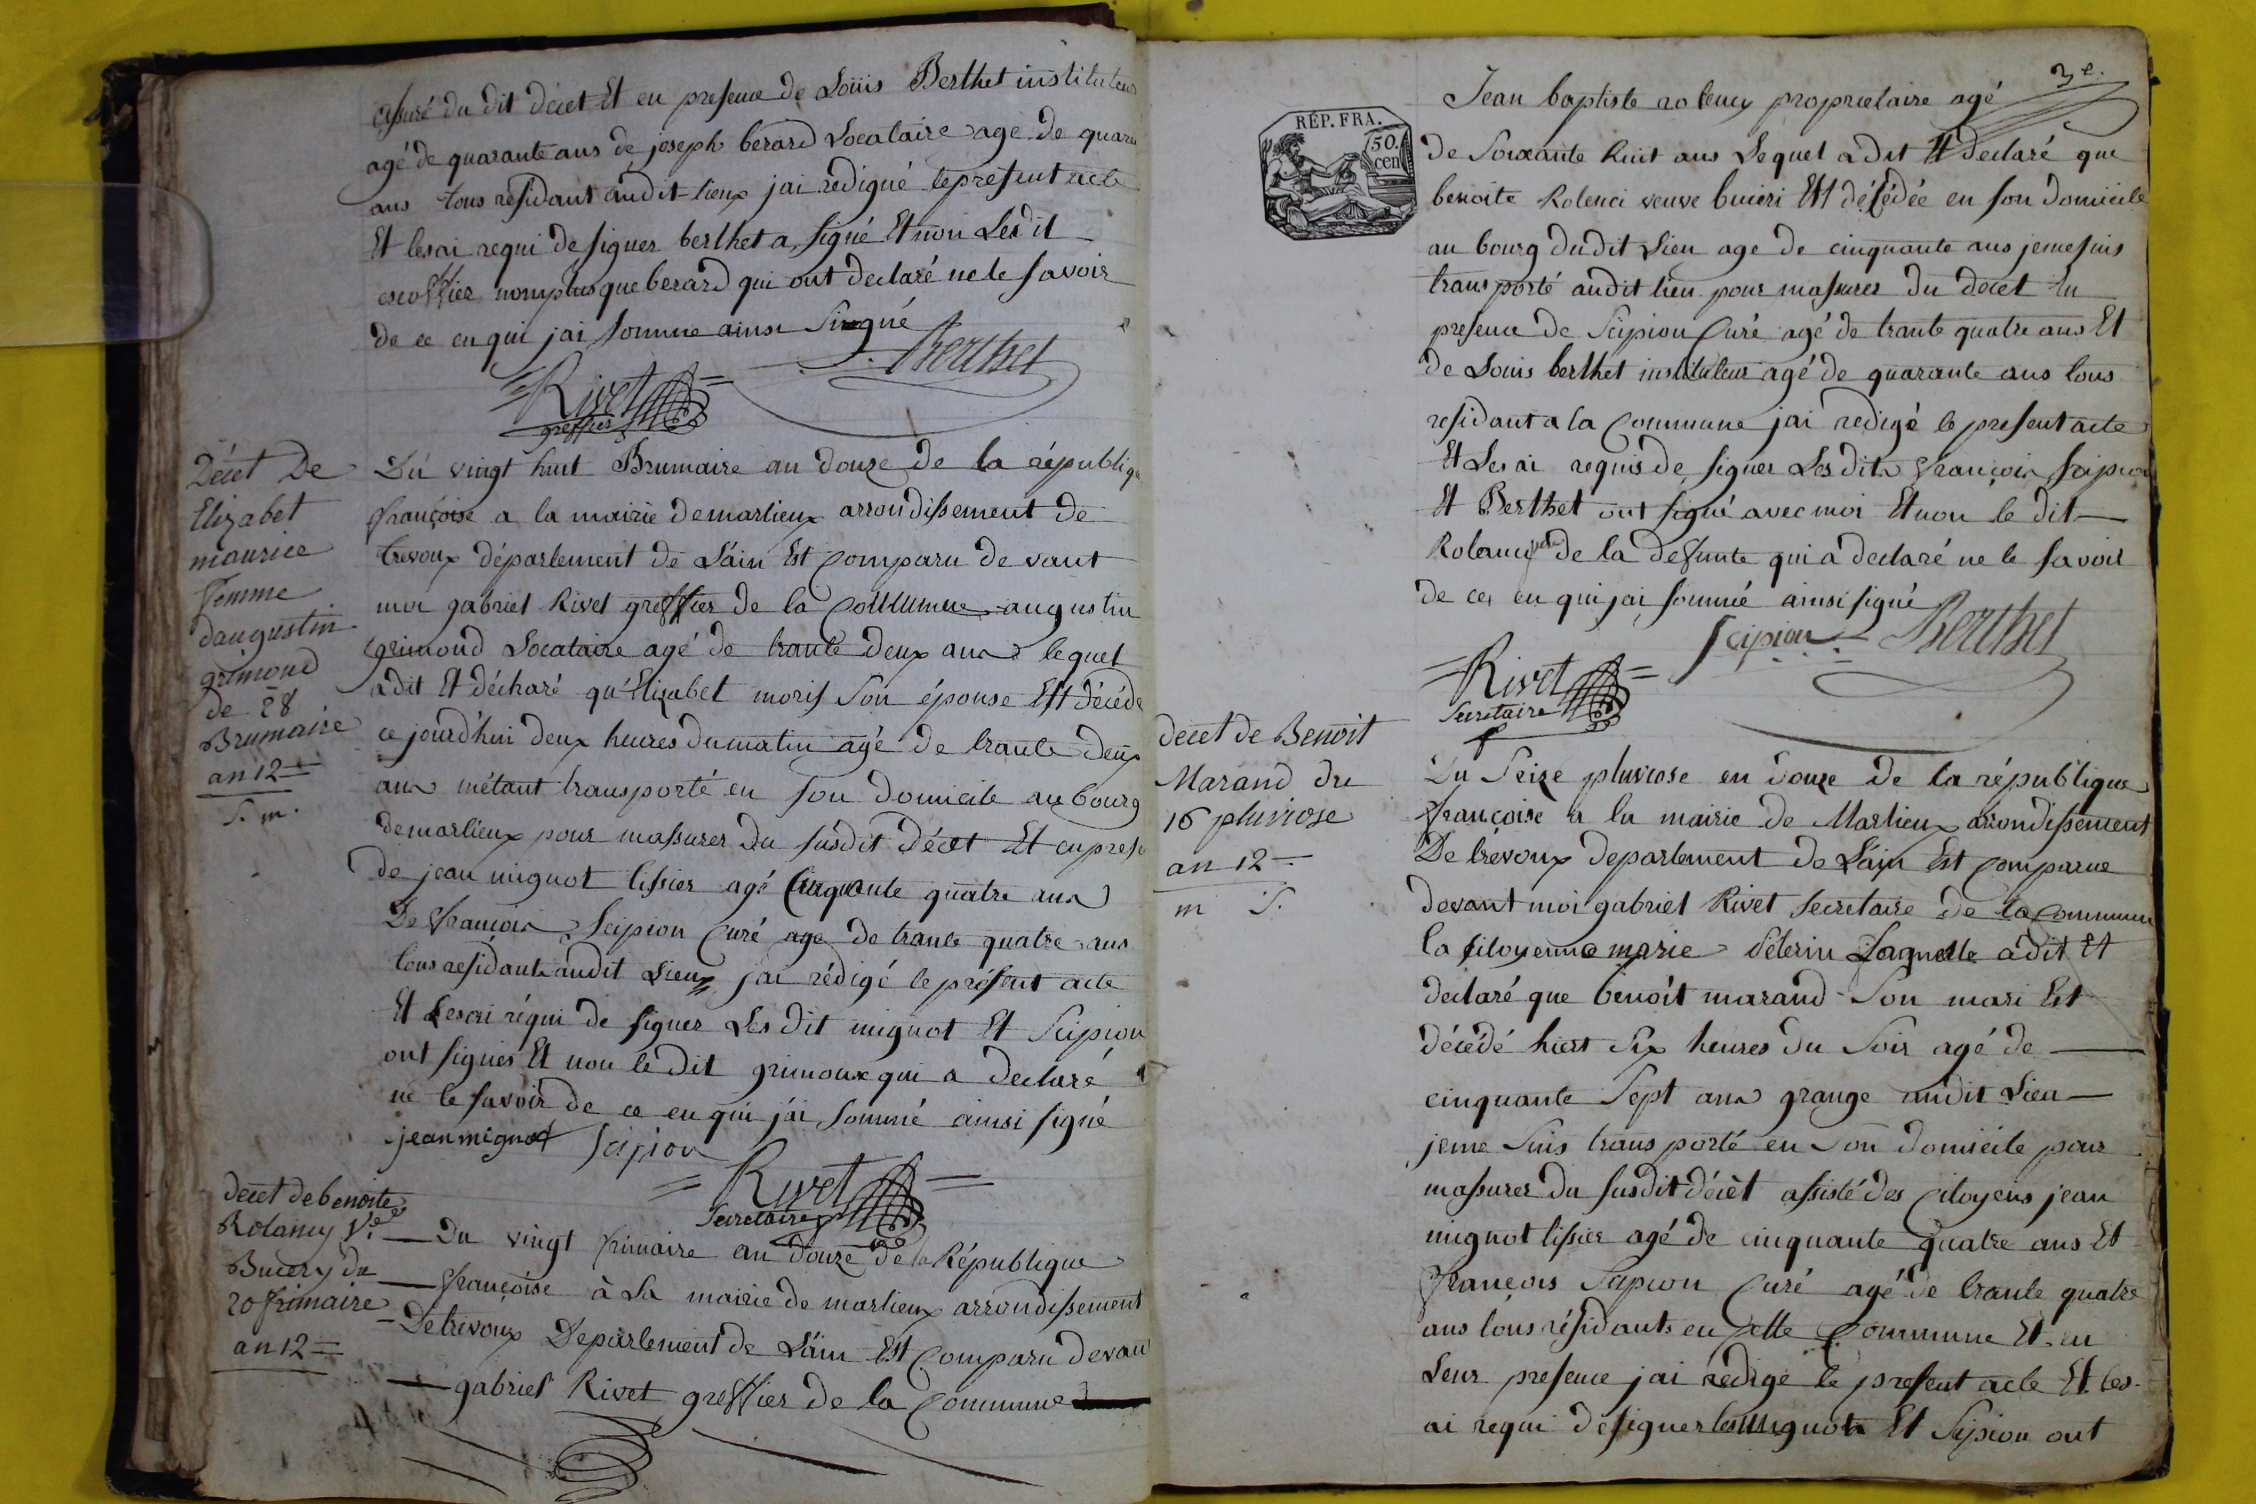 assuré du dit décet Et en presence de Loüis Berthet instituteur
agé de quarante ans de joseph berard Locataire age de quara
ans tous residant audit-lieux jai redigué le present acte
Et les ai requi de signer berthet a signé Et non Les dit
escoffier nomplus que berard qui ont declaré ne le savoir
de ce en qui jai somme ainsi Singné
Berthet
Rivet
greffier
Décet De
Elizabet
maurice
femme
daugustin
grimond
de 28
Brumaire
an 12
S. m.
Du vingt huit Brumaire an douze de la républiq
françoise a la mairie de marlieux arrondissement de
trevoux département de L'áin Est Comparu de vant
moi gabriel Rivet greffier de la Commune augustin
grimond Locataire agé de trante deux ans lequel
a dit Et décharé qu'Elizabet moris Son épouse Est décédé
ce jourd'hui deux heures du matin agé de trante deux
ans métant transporté en son domicile au bourg
de marlieux pour massurer du susdit Décet Et en prese
de jean mignot tissier agé Cinquante quatre ans
De françois Scipion Curé age de trante quatre ans
tous residants audit Lieux jai rédigé le présent acte
Et Les ai réqui de signer Les dit mignot Et Scipion
ont signés Et non le dit grimoux qui a declaré
ne le savoir de ce en qui j'ai sommé ainsi signé
jean mignot Scipion
Rivet
Secretaire
decet de benoite
Rolancy Ve.
Buciery du
20 frimaire
an 12
Du vingt frimaire an douze de la République
françoise à La mairie de marlieux arrondissement
De trevoux Département de L'ain Est Comparu devan
gabriel Rivet greffier de la Commune
3e.
RÉP. FRA.
50.
cen
Jean baptiste rolency proprietaire agé
de Soixante huit ans Lequel a dit Et declaré que
benoite Rolenci veuve buieri Est décédée en son domicile
au bourg dudit Lieu age de cinquante ans je me suis
transporté audit lieu pour massurer du decet En
presence de Scipion Curé agé de trante quatre ans Et
de Louis berthet instituteur agé de quarante ans tous
residant a la Commune jai redigé le present acte
Et Les ai requis de signer Les dits françois Scipion
Et Berthet ont signé avec moi Et non le dit
Rolancy de la defunte qui a declaré ne le savoir
de ce en qui jai sommé ainsi signé
Scipion Berthet
Rivet
Secretaire
decet de Benoit
Marand du
16 pluviose
an 12
m S.
Du Seize pluviose en douze de la république
françoise a la mairie de Marlieux arrondissement
De trévoux departement de L'ain Est Comparue
devant moi gabriel Rivet Secretaire de la Commune
la Citoyenne marie Pélerin Laquelle a dit Et
declaré que benoit marand Son mari Est
décédé hiert Six heures du Soir agé de
cinquante Sept ans grange audit Lieu
je me Suis transporté en Son domicile pour
massurer du susdit décèt assisté des Citoyens jean
mignot tissier agé de cinquante quatre ans Et
françois Scipion Curé agé de trante quatre
ans tous résidants en cette Commune Et en
Leur presence jai redigé le present acte Et les
ai requi de signer les mignot Et Scipion ont